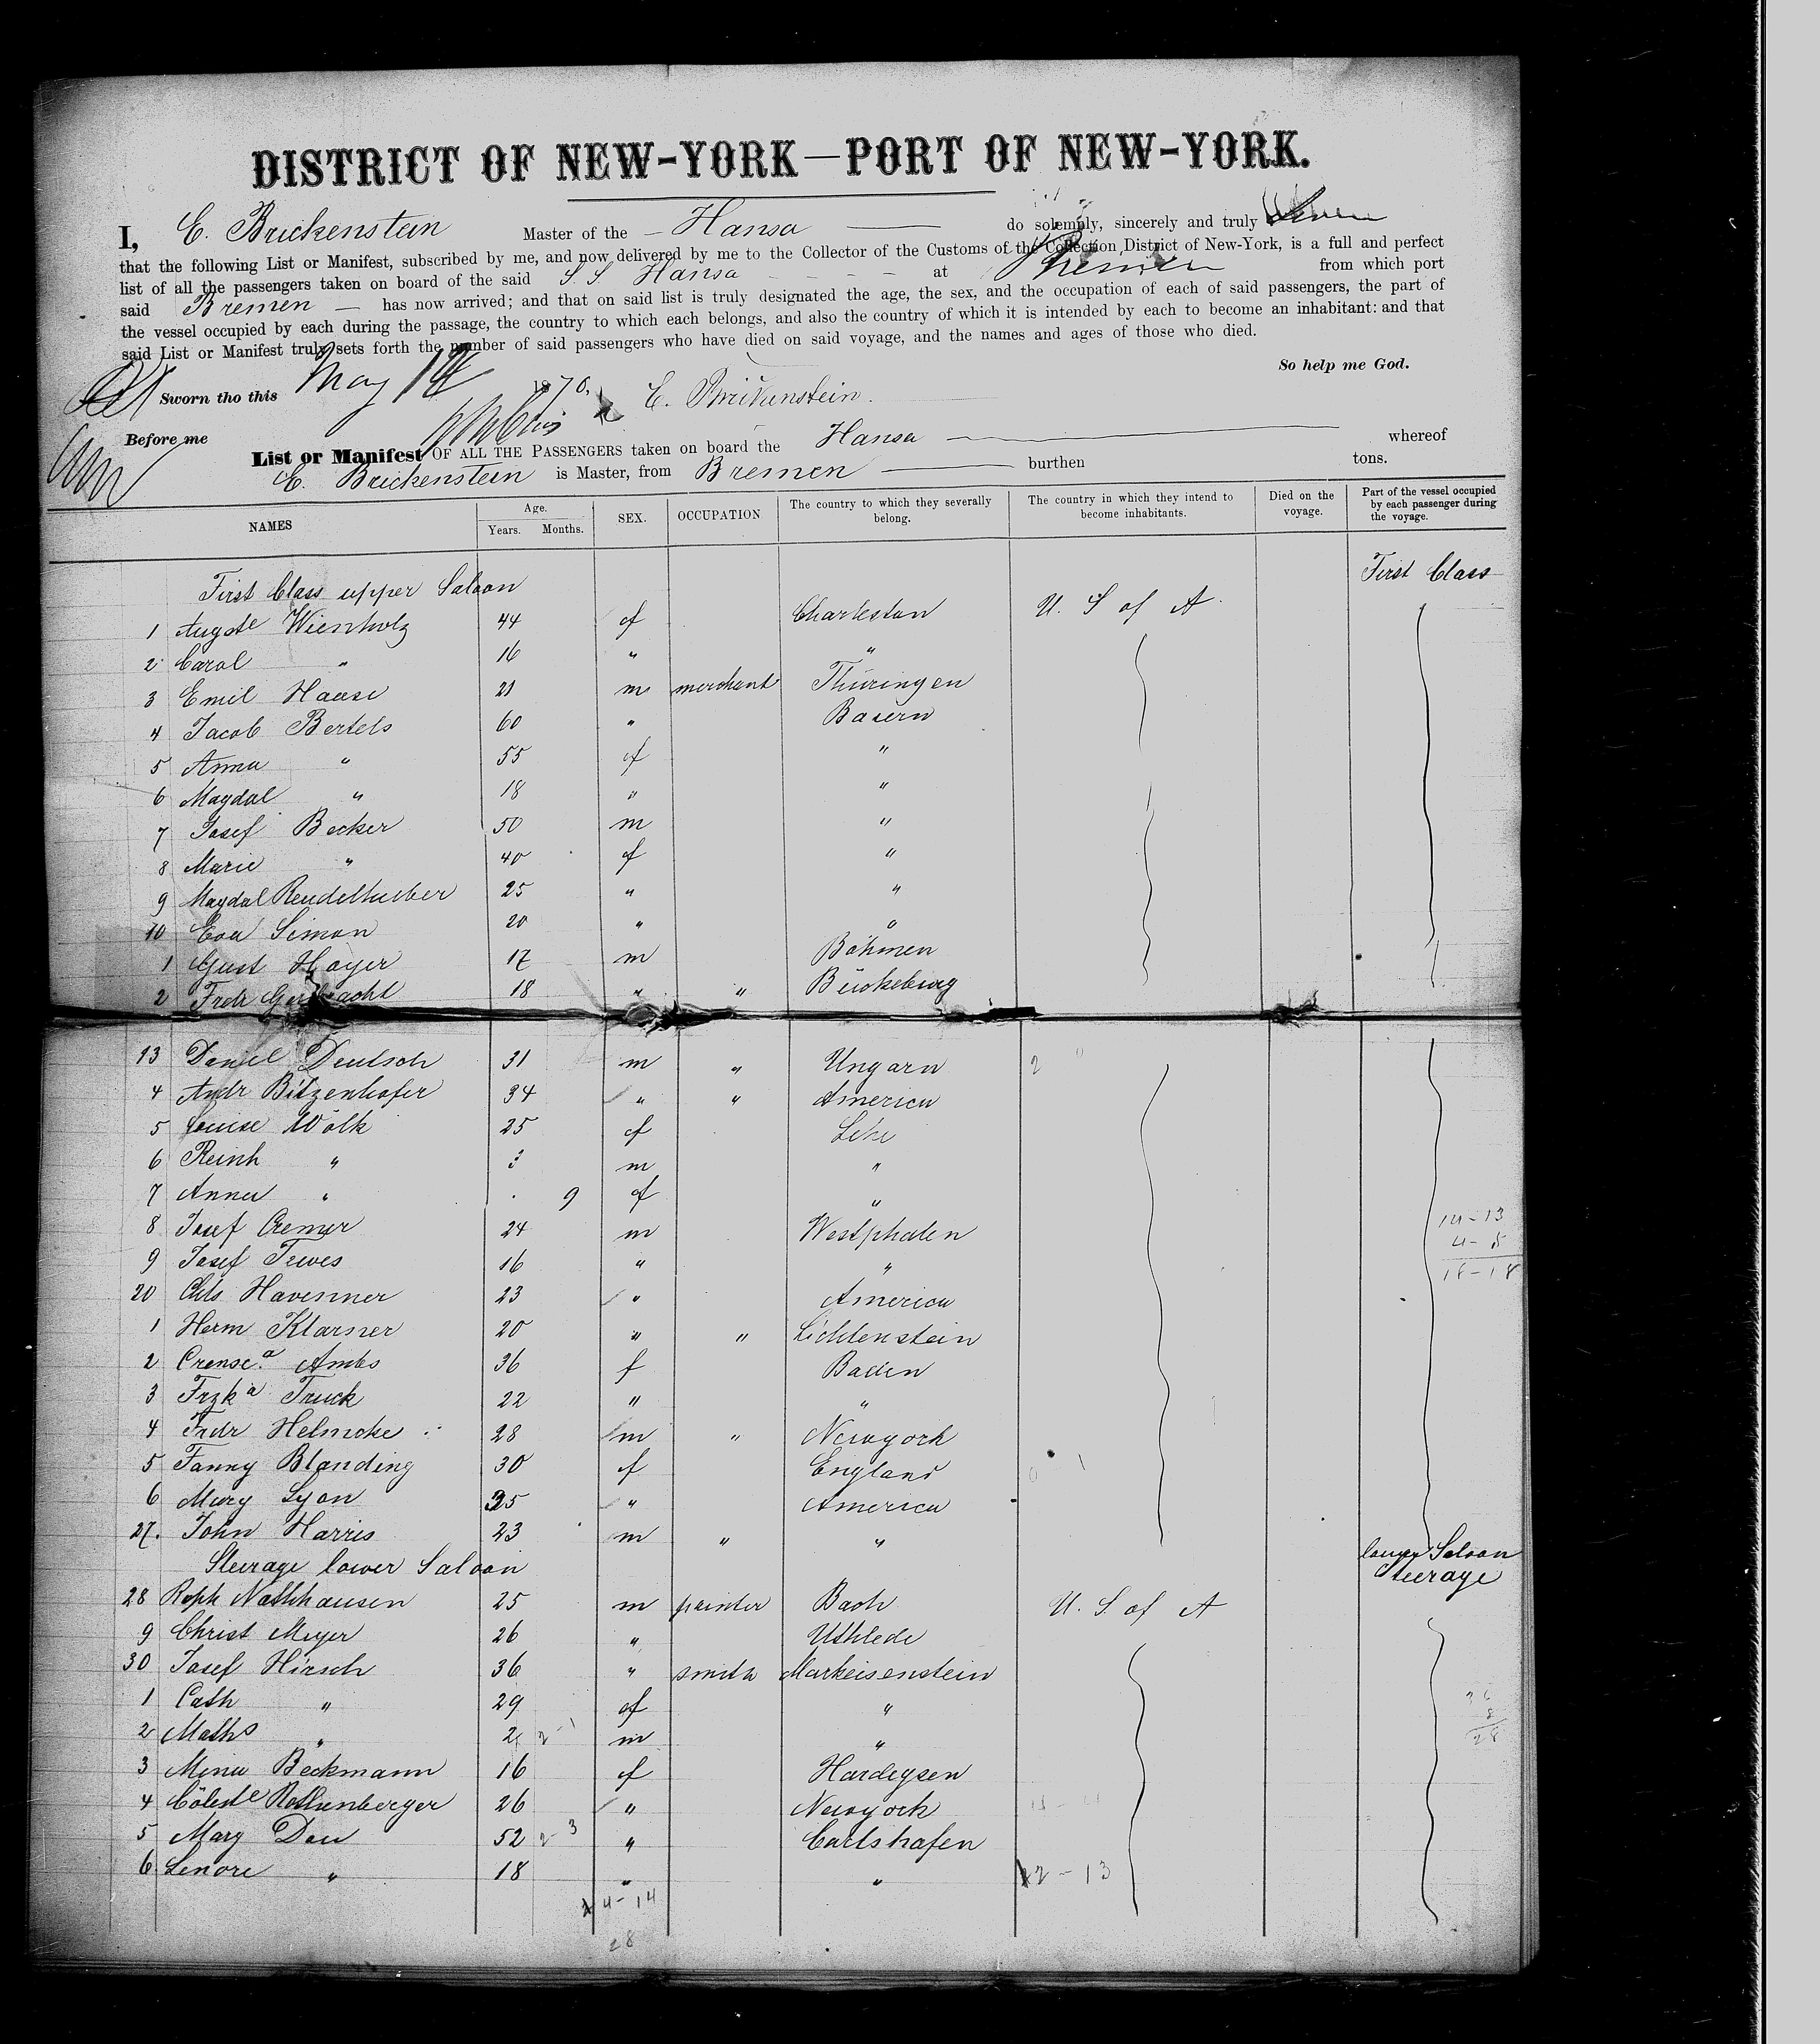 DISTRICT OF NEW-YORK—PORT OF NEW-YORK.
I, E. Brickenstein Master of the Hansa do solemnly, sincerely and truly
that the following List or Manifest, subscribed by me, and now delivered by me to the Collector of the Customs of the Collection District of New-York, is a full and perfect
list of all the passengers taken on board of the said S. S. Hansa at Bremen from which port
said Bremen has now arrived; and that on said list is truly designated the age, the sex, and the occupation of each of said passengers, the part of
the vessel occupied by each during the passage, the country to which each belongs, and also the country of which it is intended by each to become an inhabitant: and that
said List or Manifest truly sets forth the number of said passengers who have died on said voyage, and the names and ages of those who died.
So help me God.
Sworn tho this May 1870. E. Brickenstein.
Before me
List or Manifest OF ALL THE PASSENGERS taken on board the Hansa whereof
E. Brickenstein is Master, from Bremen burthen tons.
NAMES Age. Years. Months. SEX. OCCUPATION The country to which they severally belong. The country in which they intend to become inhabitants. Died on the voyage. Part of the vessel occupied by each passenger during the voyage.
First Class upper Saloon First Class
1 Auguste Wienholz 44 f Charleston U. S of A.
2 Carol " 16 " "
3 Emil Haase 21 m merchant Thüringen
4 Jacob Bertels 60 " Baiern
5 Anna " 55 f "
6 Magdal " 18 " "
7 Josef Becker 50 m "
8 Marie " 40 f "
9 Magdal 25 " "
10 Eva Simon 20 " "
1 Gust Hoyer 17 m Böhmen
2 Fredr 18 " " Bückeburg
13 Daniel Deutsch 31 m " Ungarn
4 Andr Bitzenhofer 34 " " America
5 Louise Wölk 25 f Lehe
6 Reinh " 3 m "
7 Anna " 9 f "
8 Josef Cremer 24 m Westphalen
9 Josef Tewes 16 " "
20 Chls Havenner 23 " America
1 Herm Klarner 20 " " Lichtenstein
2 Crensca Ambs 36 f Baden
3 Frzka Truck 22 " "
4 Frdr Helmcke 28 m " Newyork
5 Fanny Blanding 30 f England
6 Mary Lyon 25 " America
27. John Harris 23 m " "
Steerage lower Saloon lower Saloon Steerage
28 Roph Nathhausen 25 m painter Bach U. S. of A
9 Christ Meyer 26 " Uthlede
30 Josef Hirsch 36 " smith Markeisenstein
1 Cath " 29 f "
2 Maths " 2 m "
3 Mina Beckmann 16 f Hardegsen
4 Cöleste Rothenberger 26 " Newyork
5 Mary Dau 52 " Carlshafen
6 Lenore " 18 " "
22-13
4-14
28